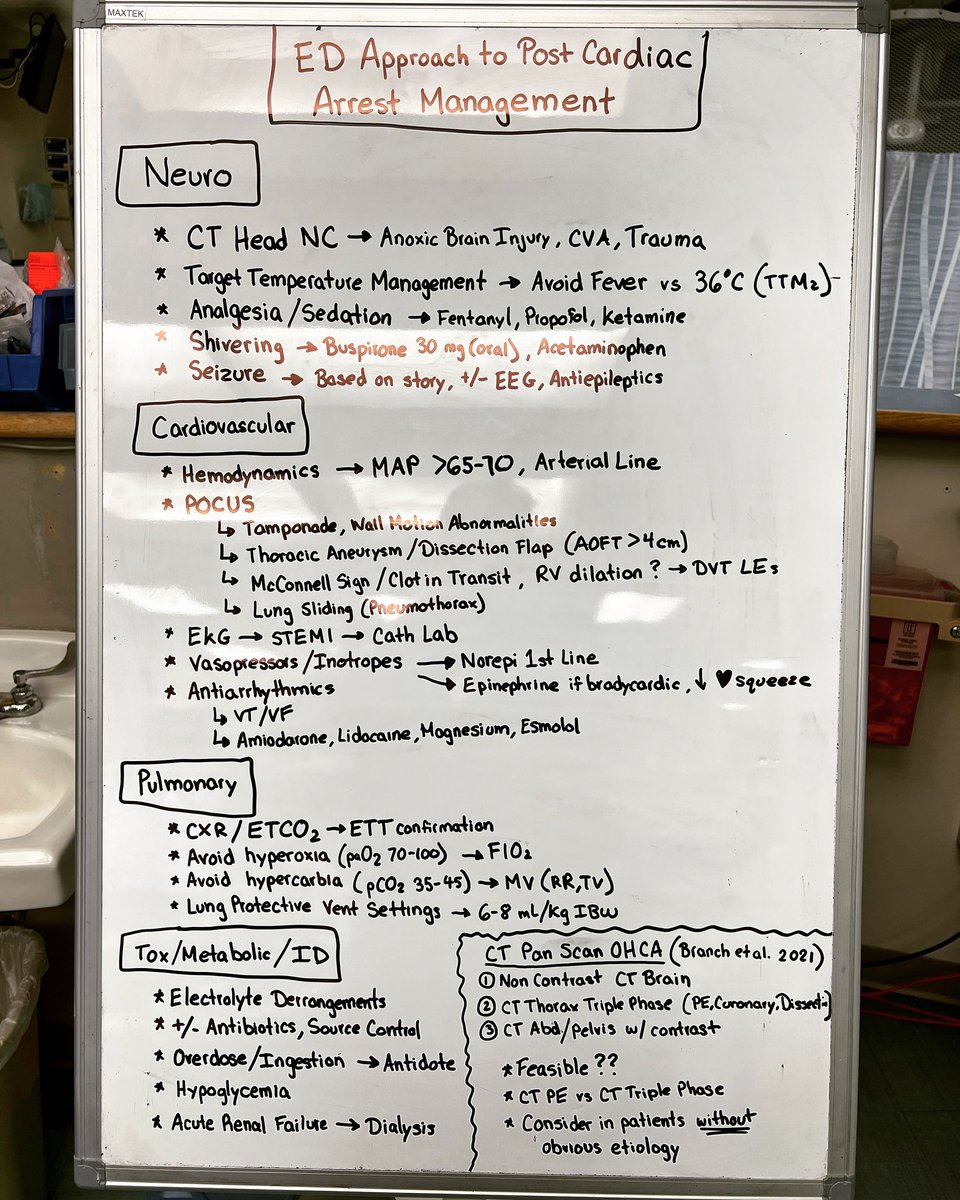 MAXTEK
ED Approach to Post Cardiac
Arrest Management
Neuro
* CT Head NC → Anoxic Brain Injury, CVA, Trauma
* Target Temperature Management → Avoid Fever vs 36°C (TTM2)
* Analgesia/Sedation → Fentanyl, Propofol, Ketamine
* Shivering → Buspirone 30 mg (oral), Acetaminophen
* Seizure → Based on story, +/- EEG, Antiepileptics
Cardiovascular
* Hemodynamics → MAP >65-70, Arterial Line
* POCUS
↳ Tamponade, Wall Motion Abnormalities
↳ Thoracic Aneurysm/Dissection Flap (AOFT >4cm)
↳ McConnell Sign/Clot in Transit, RV dilation? → DVT LEs
↳ Lung Sliding (Pneumothorax)
* EKG → STEMI → Cath Lab
* Vasopressors/Inotropes → Norepi 1st Line
→ Epinephrine if bradycardic, ↓ ♥ squeeze
* Antiarrhythmics
↳ VT/VF
↳ Amiodarone, Lidocaine, Magnesium, Esmolol
Pulmonary
* CXR/ETCO2 → ETT confirmation
* Avoid hyperoxia (paO2 70-100) → FIO2
* Avoid hypercarbia (pCO2 35-45) → MV (RR, TV)
* Lung Protective Vent Settings → 6-8 ml/kg IBW
Tox/Metabolic/ID
* Electrolyte Derrangements
* +/- Antibiotics, Source Control
* Overdose/Ingestion → Antidote
* Hypoglycemia
* Acute Renal Failure → Dialysis
CT Pan Scan OHCA (Branch et al. 2021)
① Non Contrast CT Brain
② CT Thorax Triple Phase (PE, Coronary, Dissection)
③ CT Abd/pelvis w/ contrast
* Feasible ??
* CT PE vs CT Triple Phase
* Consider in patients without
obvious etiology